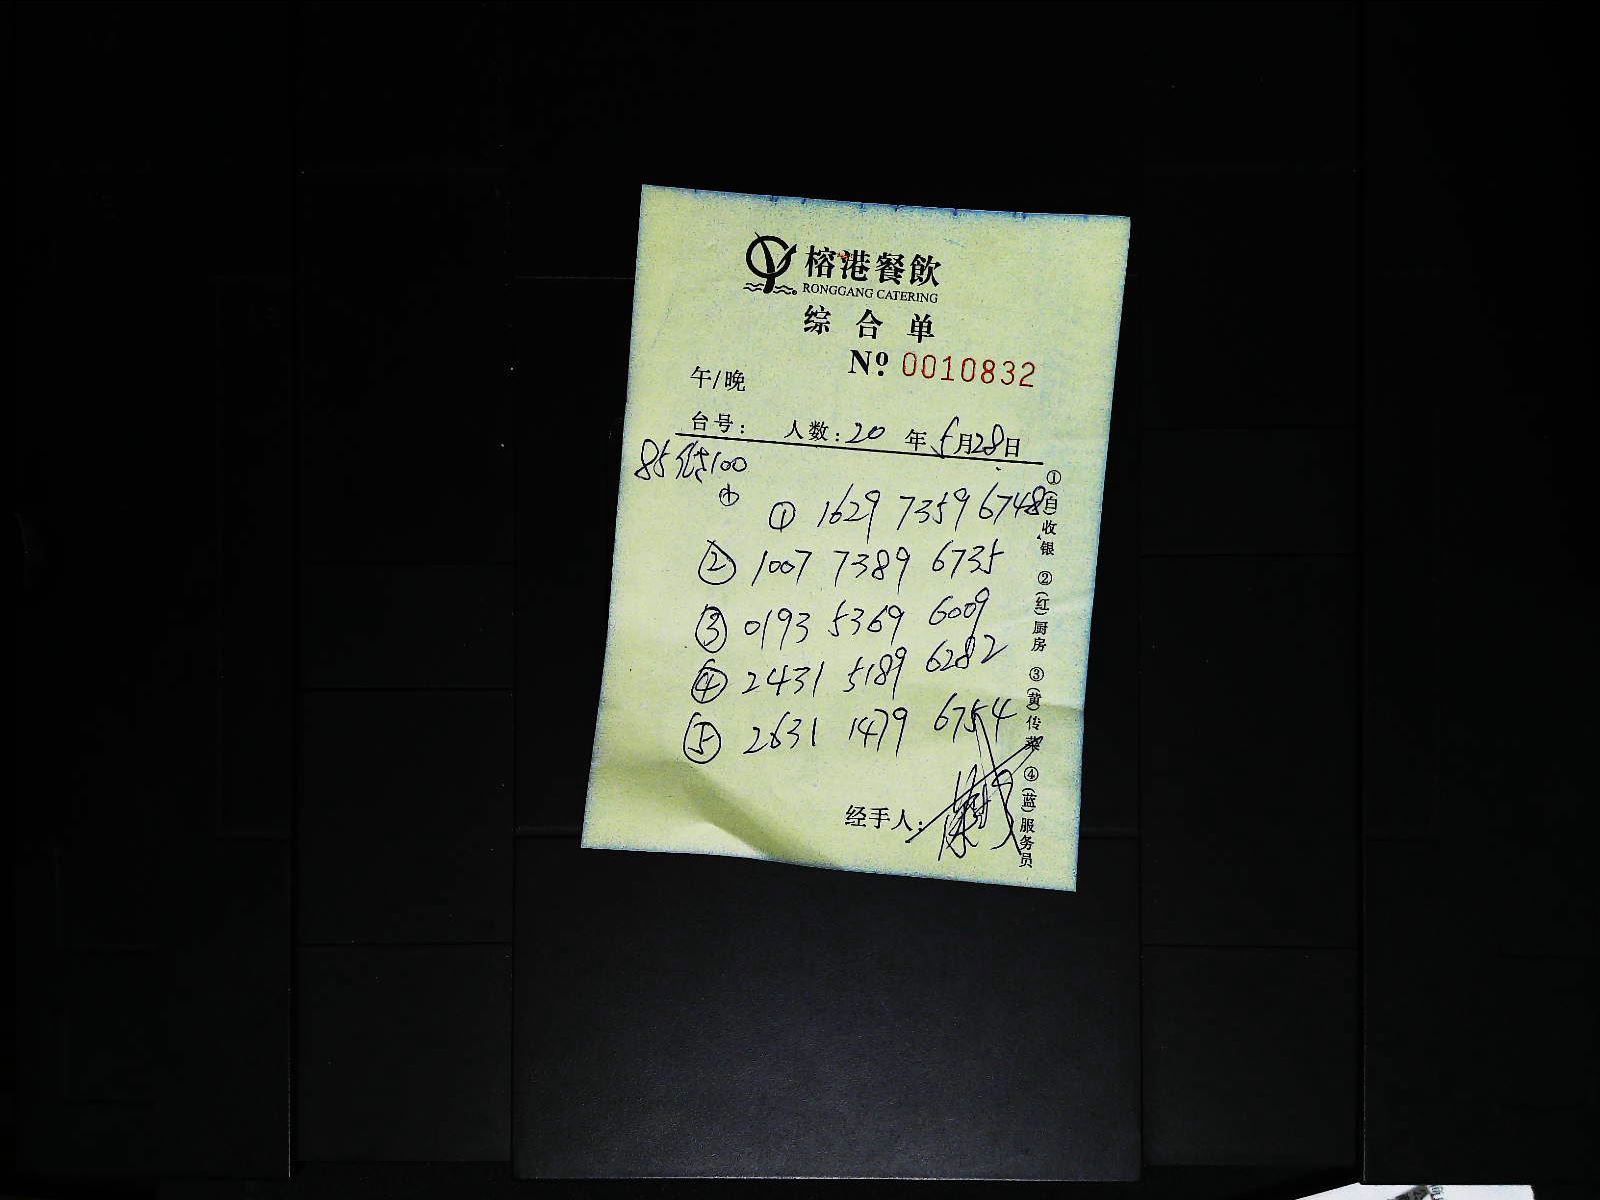 榕港餐飲
RONGGANG CATERING
综合单
Nº 0010832
午/晚
台号: 人数: 20 年 5月28日
85抵100
① 1629 7359 6748
② 1007 7389 6735
③ 0193 5369 6009
④ 2431 5189 6282
⑤ 2631 1479 6754
经手人:
①(白)收银 ②(红)厨房 ③(黄)传菜 ④(蓝)服务员